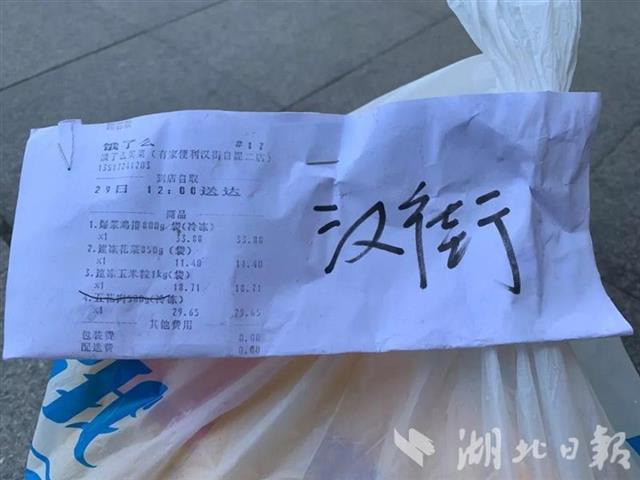 饿了么 #17
饿了么买菜（有家便利汉街自提二店）
到店自取
29日 12:00送达
商品
1.爆浆鸡排800g/袋(冷冻)
x1 33.88 33.88
2.速冻花菜850g(袋)
x1 11.40 11.40
3.速冻玉米粒1kg(袋)
x1 18.71 18.71
4.五花肉500g(冷冻)
x1 29.65 29.65
其他费用
包装费 0.00
配送费 0.00
汉街
湖北日報